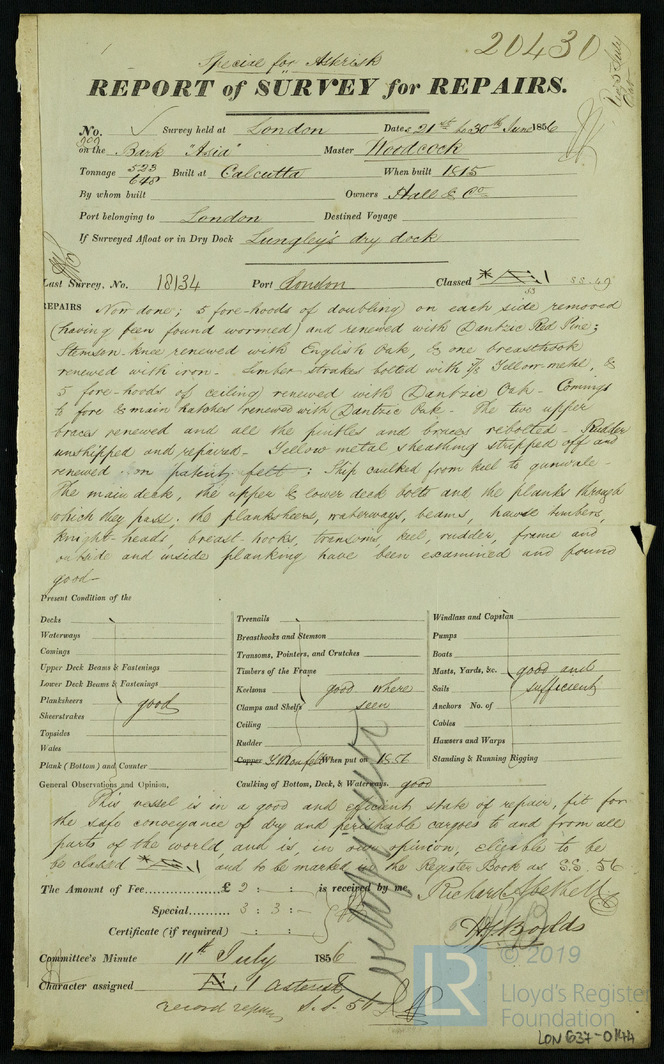 20430
Special for Asterisk
REPORT of SURVEY for REPAIRS.
No. Survey held at London Date 21st to 30th June 1856
on the Bark "Asia" Master Woodcock
Tonnage 523 648 Built at Calcutta When built 1815
By whom built Owners Hall & Co
Port belonging to London Destined Voyage
If Surveyed Afloat or in Dry Dock Lungley's dry dock
Last Survey, No. 18134 Port London Classed 53 SS. 49
REPAIRS Now done; 5 fore-hoods of doubling on each side removed
(having been found wormed) and renewed with Dantzic Red Pine;
Stemson-knee renewed with English Oak, & one breasthook
renewed with iron - Limber strakes bolted with Yellow metal, &
5 fore-hoods of ceiling renewed with Dantzic Oak - Comings
to fore & main hatches renewed with Dantzic Oak - The two upper
braces renewed and all the pintles and braces rebolted - Rudder
unshipped and repaired - Yellow metal sheathing stripped off and
renewed on patent felt; Ship caulked from keel to gunwale -
The main deck, the upper & lower deck bolts and the planks through
which they pass, the planksheers, waterways, beams, hawse timbers,
Knight-heads, breast-hooks, transoms, keel, rudder, frame and
outside and inside planking have been examined and found
good -
Present Condition of the
Decks
Waterways
Comings
Upper Deck Beams & Fastenings
Lower Deck Beams & Fastenings
Planksheers good
Sheerstrakes
Topsides
Wales
Plank (Bottom) and Counter
Treenails
Breasthooks and Stemson
Transoms, Pointers, and Crutches
Timbers of the Frame
Keelsons good where
Clamps and Shelfs seen
Ceiling
Rudder
Copper When put on 1856
Caulking of Bottom, Deck, & Waterways. good
Windlass and Capstan
Pumps
Boats
Masts, Yards, &c. good and
Sails sufficient
Anchors No. of
Cables
Hawsers and Warps
Standing & Running Rigging
General Observations and Opinion,
This vessel is in a good and efficient state of repair, fit for
the safe conveyance of dry and perishable cargoes to and from all
parts of the world and is, in our opinion, eligible to be
be classed and to be marked in the Register Book as S.S. 56
The Amount of Fee £ 2 : - : - is received by me,
Special 3 : 3 : -
Certificate (if required) : :
Committee's Minute 11th July 1856
Character assigned 1 asterisk
record repairs S.S. 56
© 2019
LR
Lloyd's Register
Foundation
LON 637-0144